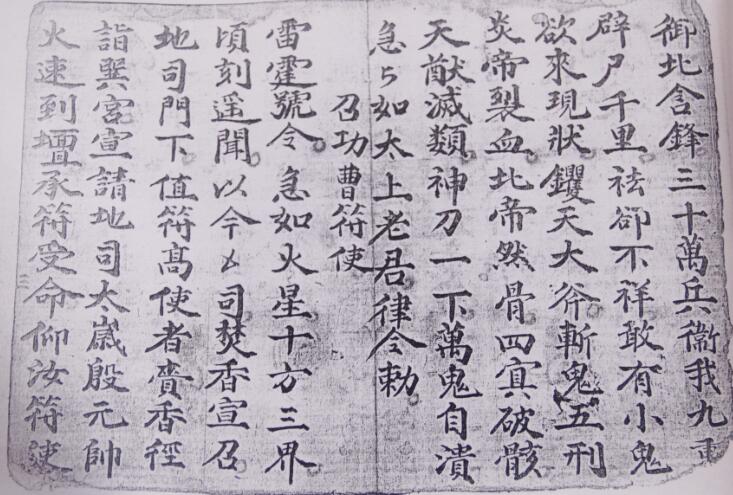 御北含鋒三十萬兵衞我九重
辟尸千里祛卻不祥敢有小鬼
欲來現狀钁天大斧斬鬼五刑
炎帝裂血北帝然骨四㝠破骸
天猷滅類神刀一下萬鬼自潰
急々如太上老君律令勅
召功曹符使
雷霆號令急如火星十方三界
頃刻遥聞以今厶司焚香宣召
地司門下值符髙使者賫香徑
詣巽宮宣請地司太歲殷元帥
火速到壇承符受命仰汝符使